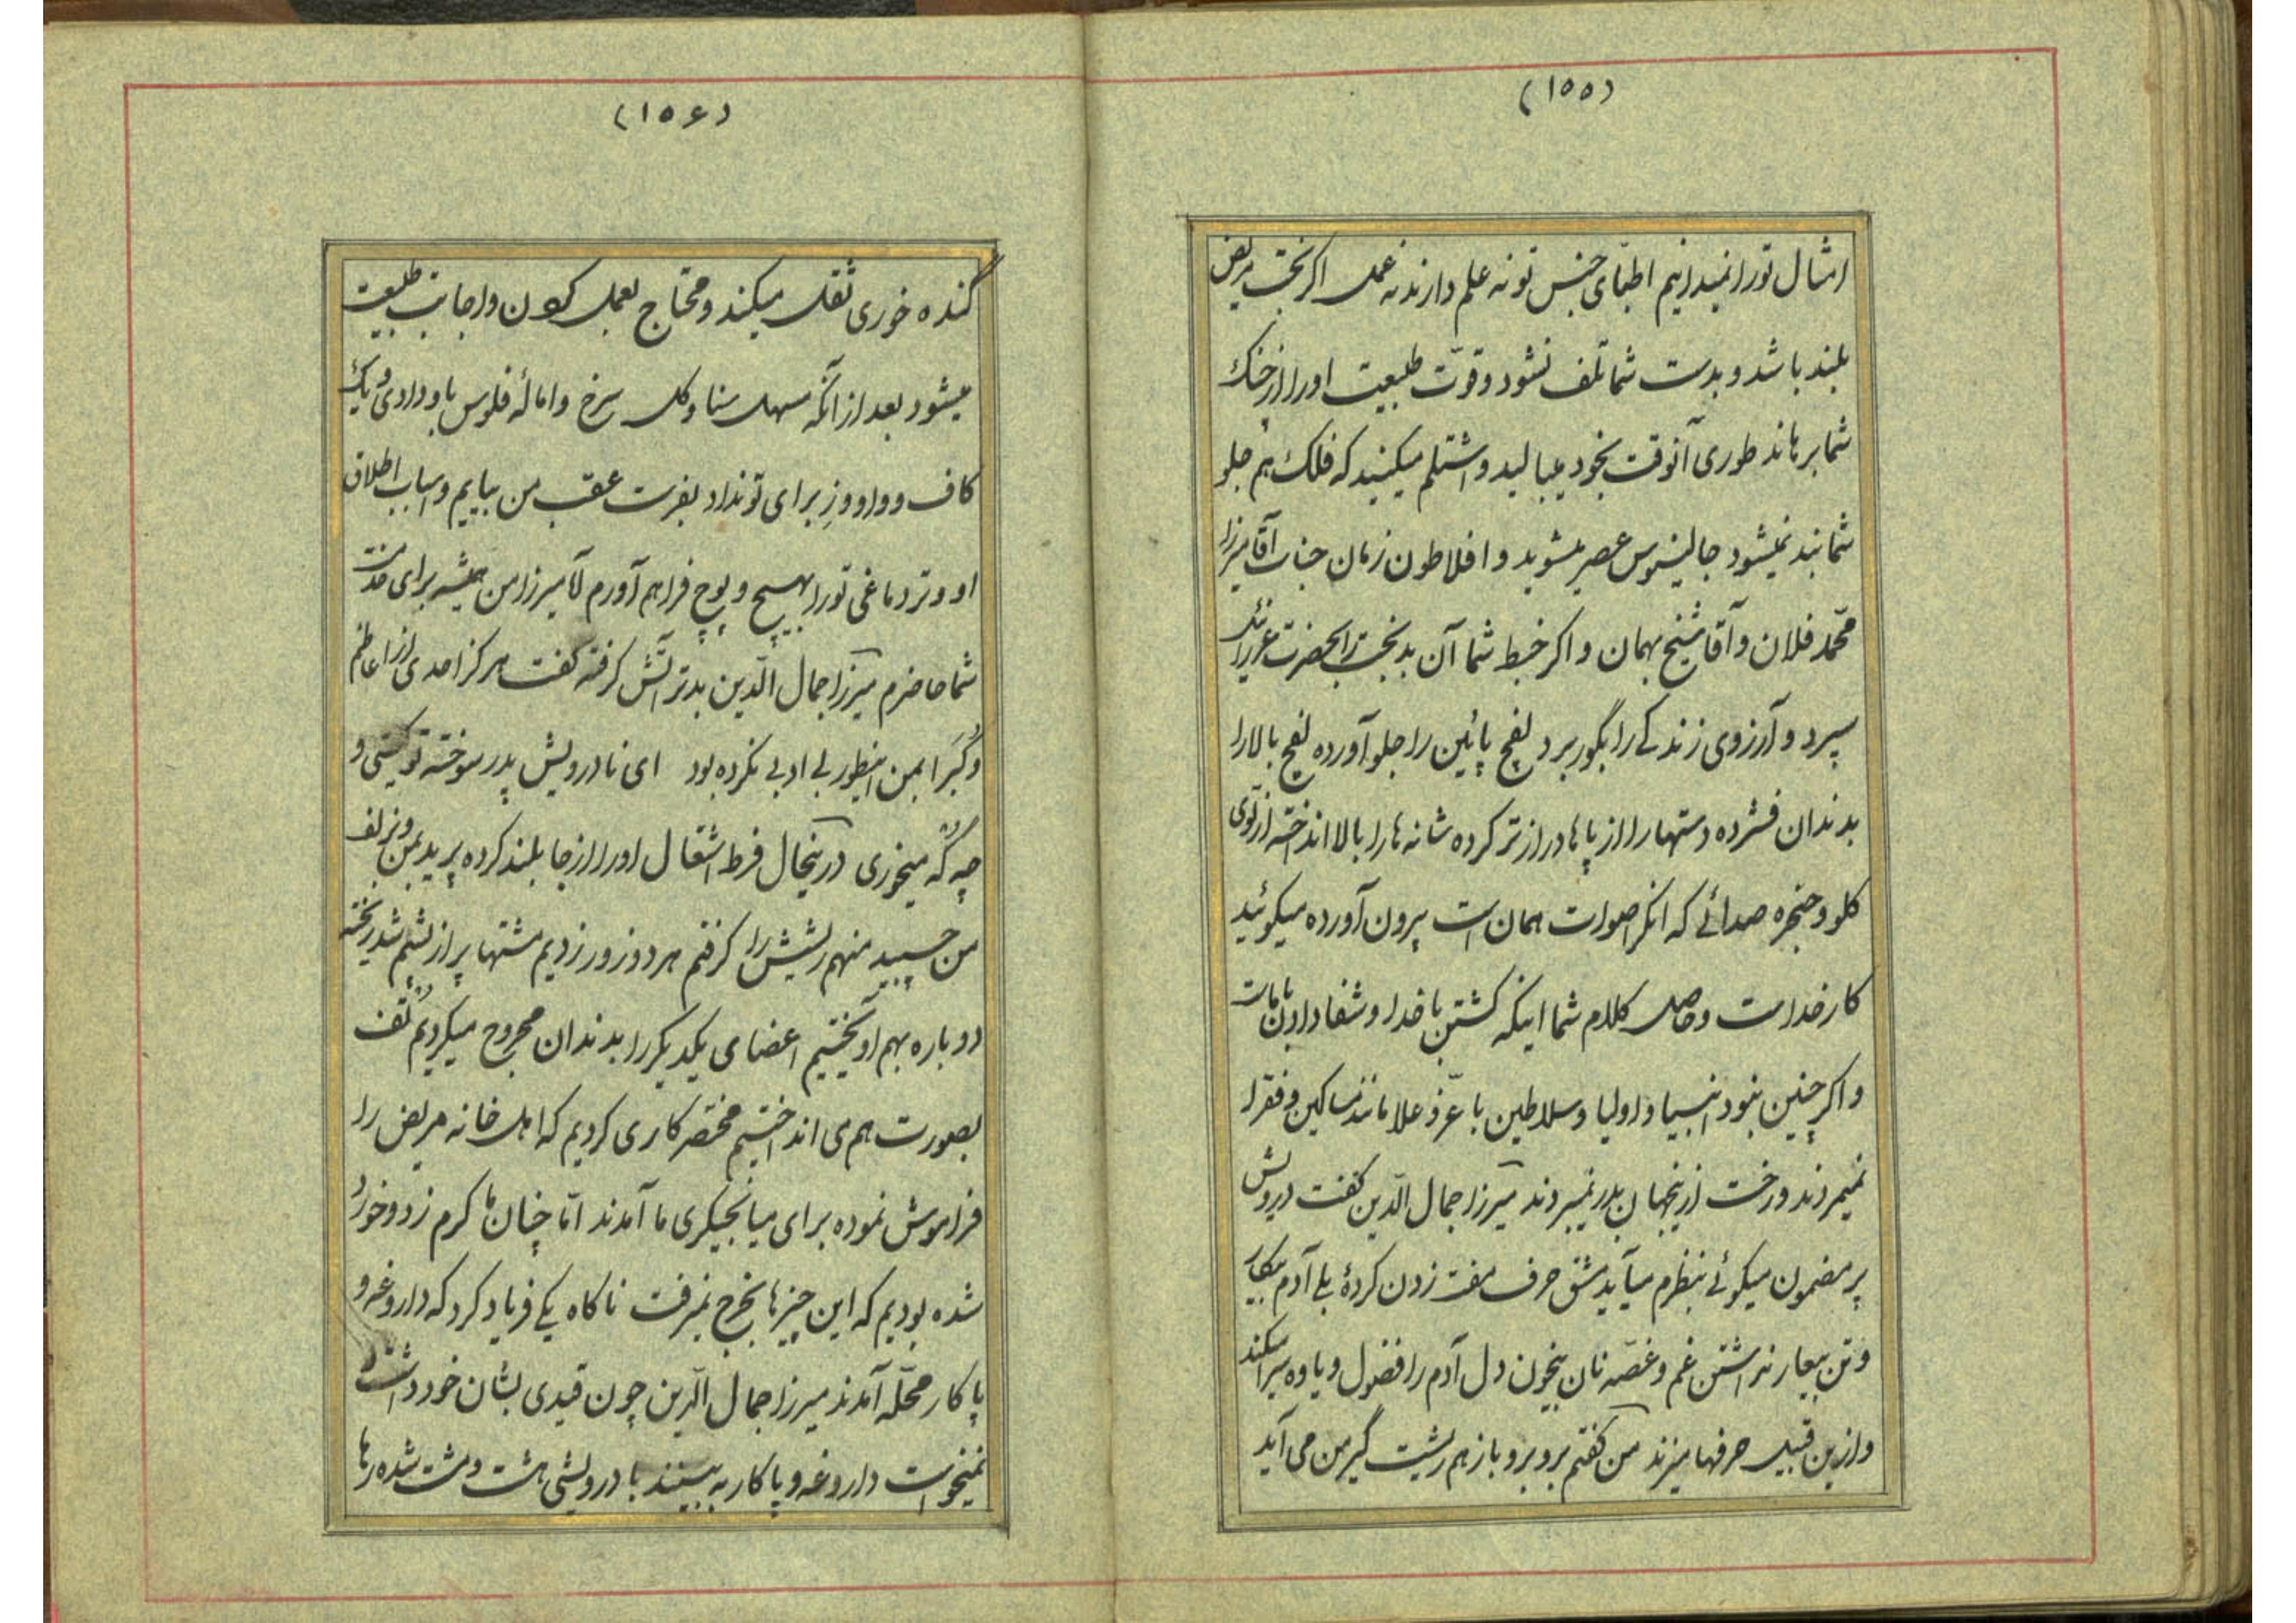 (۱۵۵)
امثال تو را نمیدانیم اطبّای جنس تو نه علم دارند نه عمل اکر بخت مریض
بلند باشد و بدست شما تلف نشود و قوّت طبیعت او را از چنک
شما برهاند طوری آنوقت بخود میبالید و اشتلم میکنید که فلک هم جلو
شما بند نمیشود جالینوس عصر میشوید و افلاطون زمان جناب آقا میرزا
محمّد فلان و آقا شیخ بهمان و اکر خبط شما آن بدبخت را بحضرت عزرائیل
سپرد و آرزوی زندکی را بکور برد لفچ پائین را جلو آورده لفچ بالا را
بدندان فشرده دستها را از پاها درازتر کرده شانه ها را بالا انداخته از توی
کلو و حنجره صدائی که انکر اصوات همان است بیرون آورده میکوئید
کار خداست و حاصل کلام شما اینکه کشتن با خدا و شفا دادن با ماست
و اکر چنین نبود انبیا و اولیا و سلاطین با عزّ و علا مانند مساکین و فقرا
نمیمردند و رخت ازینجهان بدر نمیبردند میرزا جمال الدّین کفت درویش
پر مضمون میکوئی بنظرم میآید مشق حرف مفت زدن کردهٔ بلی آدم بیکار
و تن بیعار نداشتن غم و غصّه نان بیخون دل آدم را فضول و یاوه سرا میکند
و ازین قبیل حرفها میزند من کفتم برو برو باز هم ریشت گیر من می آید
(۱۵۶)
کنده خوری ثقل میکند و محتاج بعمل کردن و اجابت طبیعت
میشود بعد از آنکه مسهل سنا و کل سرخ و امالهٔ فلوس باو دادی و یک
کاف و واو و ز برای تو نداد بفرست عقب من بیایم و اسباب اطلاق
او و تر دماغی تو را بهیچ و پوچ فراهم آورم لآمیرزا من همیشه برای خدمت
شما حاضرم میرزا جمال الدّین بدتر آتش کرفته کفت هرکز احدی از اعاظم
و کُبَرا بمن اینطور بی ادبی نکرده بود ای نادرویش پدر سوخته تو کیستی و
چه گُه میخوری درینحال فرط اشتعال او را از جا بلند کرده پرید بمن و بزلف
من چسبید منهم ریشش را کرفتم هر دو زور زدیم مشتها پر از پشم شد ریخته
دوباره بهم آویختیم اعضای یکدیکر را بدندان مجروح میکردیم تُف
بصورت هم می انداختیم مختصر کاری کردیم که اهل خانه مریض را
فراموش نموده برای میانجیکری ما آمدند امّا چنان ما کرم زد و خورد
شده بودیم که این چیزها بخرج نمیرفت ناکاه یکی فریاد کرد که داروغه و
پاکار محلّه آمدند میرزا جمال الدّین چون قیدی بشان خود داشت
نمیخواست داروغه و پاکار به بینند با درویشی مشت و مشت شده رها